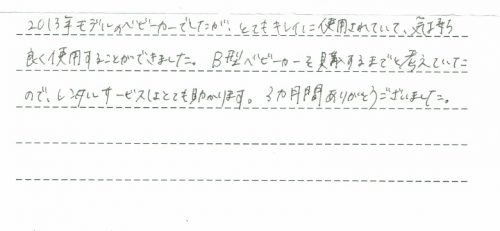 2013年モデルのベビーカーでしたが、とてもキレイに使用されていて、気持ち
良く使用することができました。B型ベビーカーを購入するまでと考えていた
ので、レンタルサービスはとても助かります。3カ月間ありがとうございました。